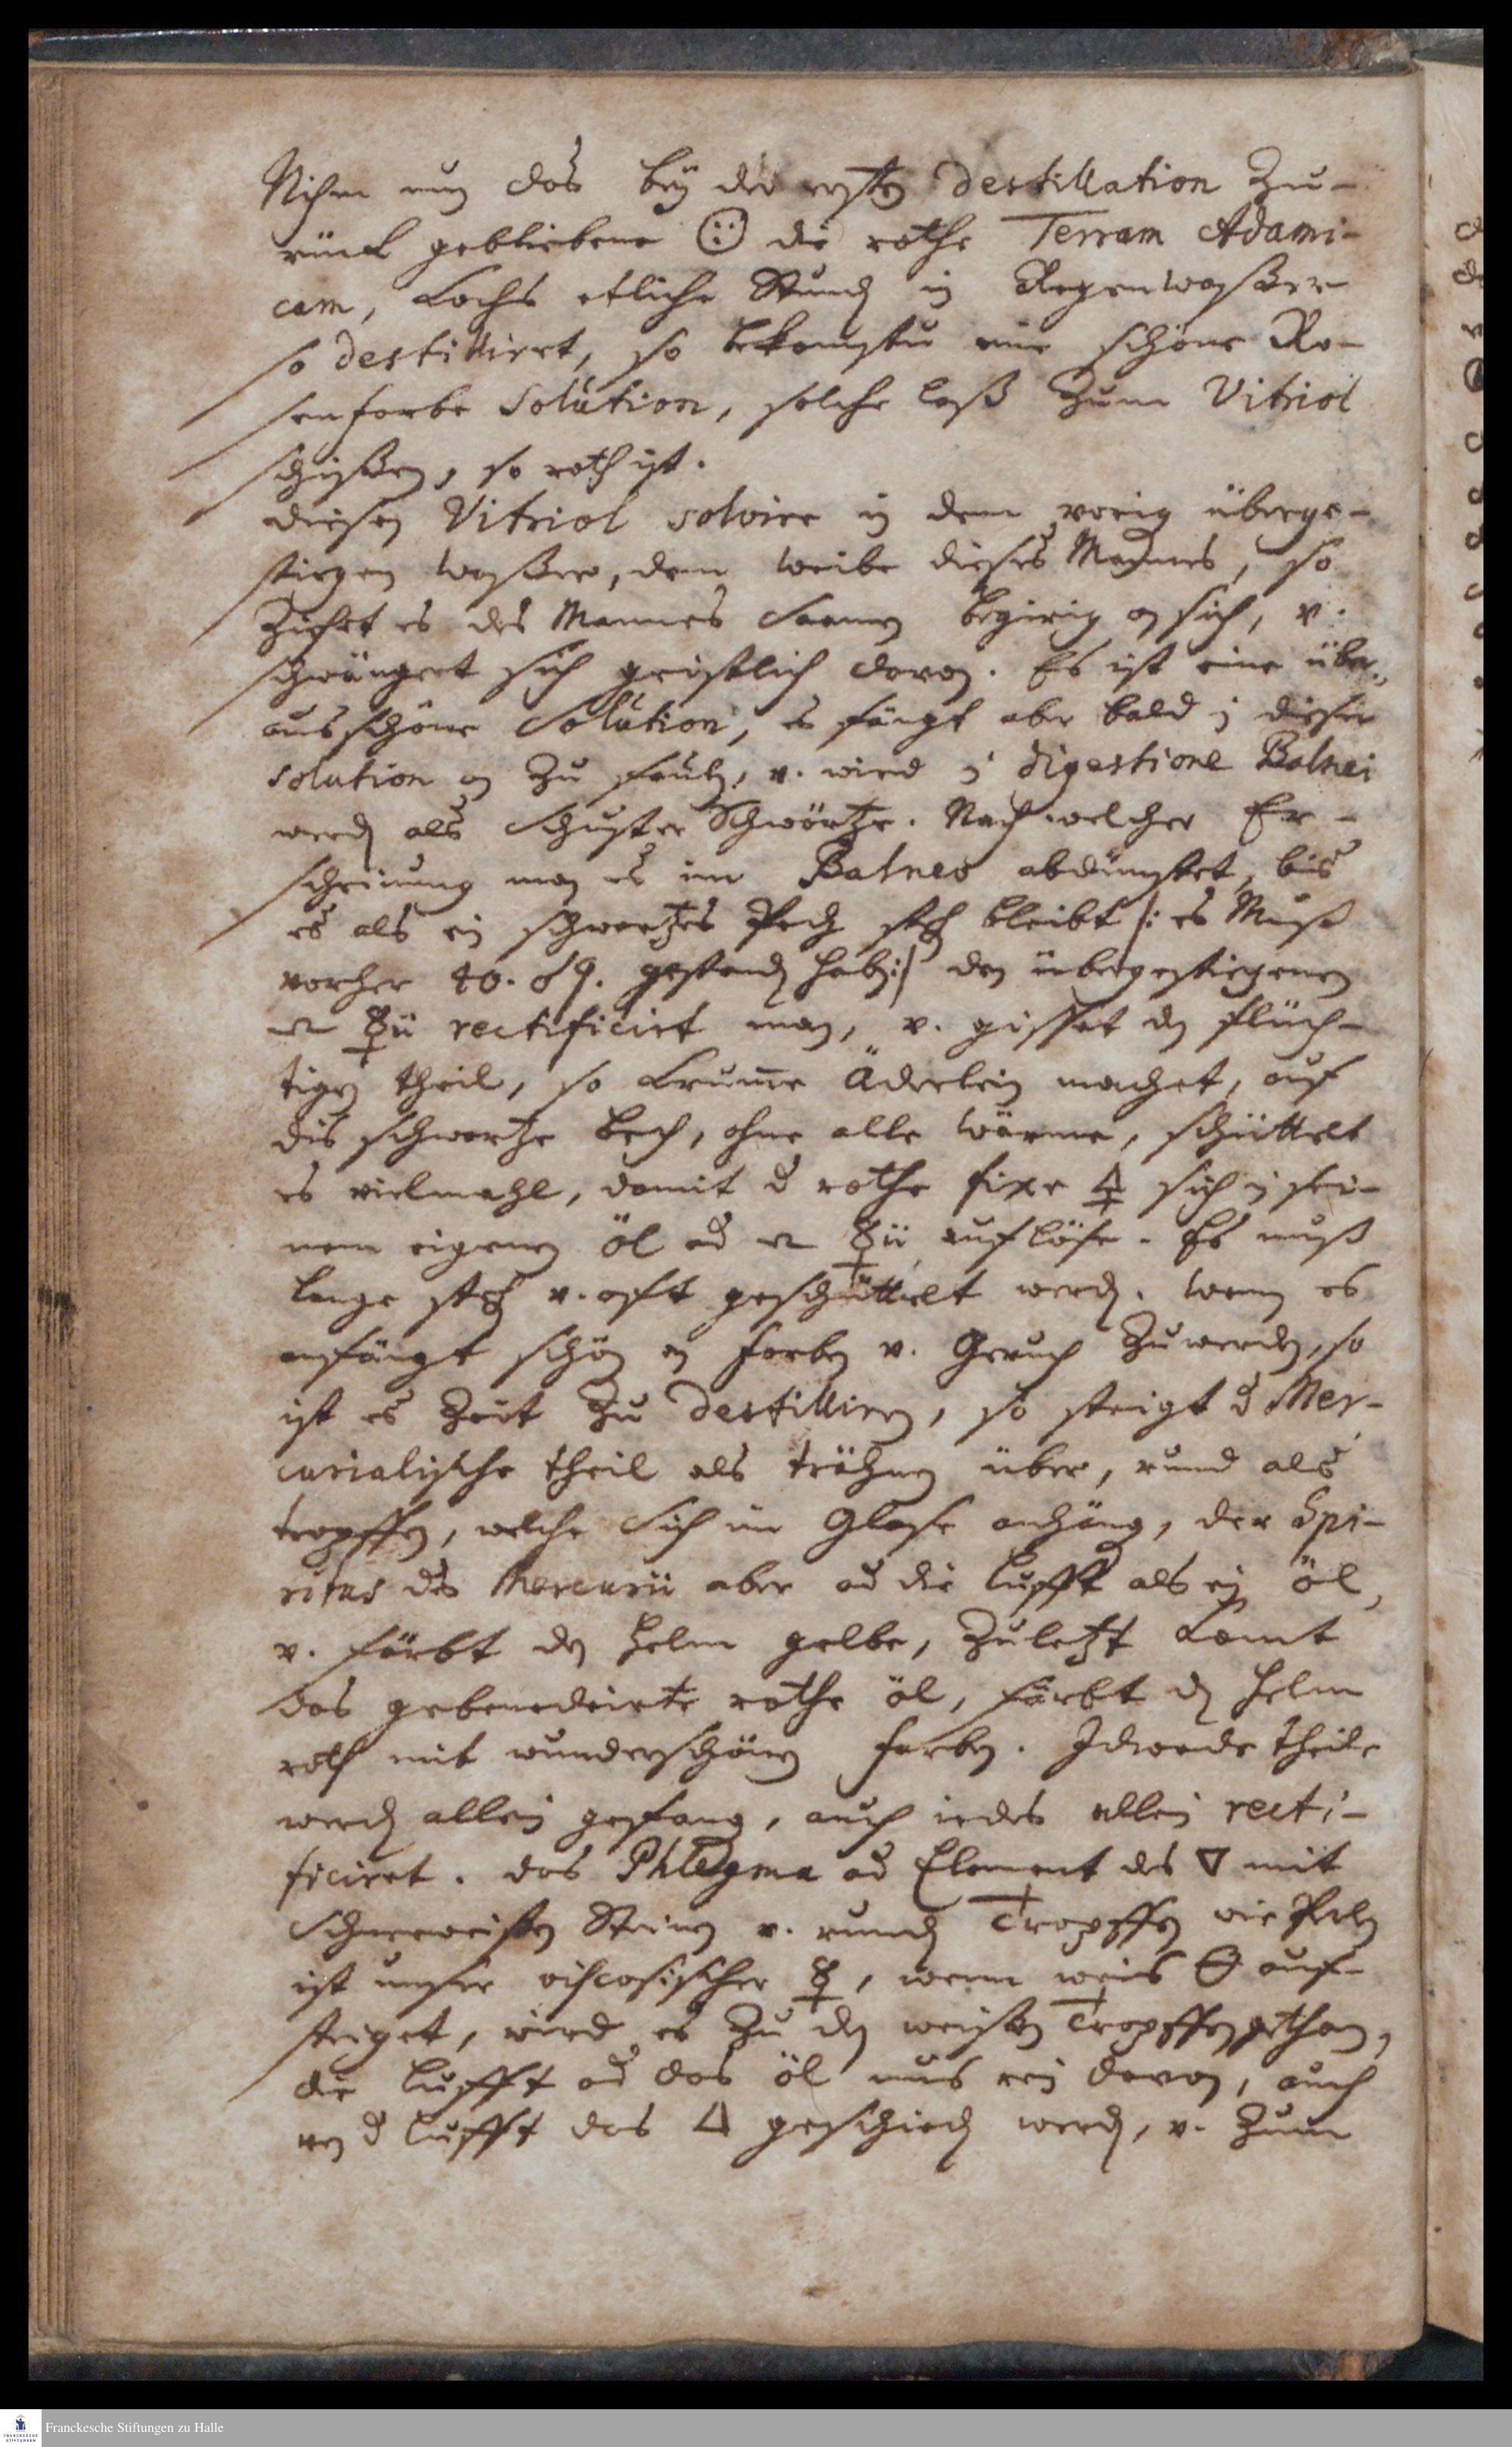 Nihm nun das bey der ersten Destillation Zu-
rück gebliebene die rothe Terram Adami-
cam, Kochs etliche Stund in Regenwaßer
so destilliret, so bekomstu eine schöne Ro-
senfarbe Solution, solche laß Zum Vitriol
schißen, so roth ist.
diesen Vitriol solvire in dem vorig überge-
stiegen waßer, dem weibe dieses Mannes, so
Zichet es des Mannes Saamen begirig an sich, v.
schwängert sich geistlich davon. Es ist eine über-
aus schöne Solution, es fängt aber bald in dieser
solution an Zu faulen, v. wird in digestione Balnei
werden als Schuster Schwärtze. Nach welcher Er-
scheinung man es im Balneo abdünstet, bis
es als ein schwartzes Pech stehen bleibt /: es Muß
vorher 40. gestanden haben :/ den übergestiegenen
☿ii rectificirt man, v. gisset den flüch-
tigen theil, so krume Äderlein machet, auf
dis schwartze Pech, ohne alle wärme, schüttelt
es vielmahl, damit d rothe fixe 🜍 sich in sei-
nem eigenen öl od ☿ii auflöse. Es muß
lange stehen v. offt geschüttelt werden. wenn es
anfängt schön an farben v. Geruch Zu werden, so
ist es Zeit Zu destilliren, so steigt d Mer-
curialische theil als trähnen über, rund als
tropffen, welche sich im Glase anhäng, der Spi-
ritus des Mercurii aber od die Lufft als ein öl,
v. färbt den Helm gelbe, Zuletzt komt
das gebenedeite rothe öl, färbt den Helm
roth mit wunderschönen farben. Idwede theile
werden allein gefang, auch iedes allein recti-
ficiret. das Phlegma od Element des 🜄 mit
Schneeweißen Steinen v. runden Tropffen wie Perlen
ist unser viscosischer ☿, wenn weis 🜔 auf-
steiget, wird es Zu den weißen Tropffen gethan,
die Lufft od das öl mus rein davon, auch
von d Lufft das 🜂 geschieden werden, v. Zum
Franckesche Stiftungen zu Halle